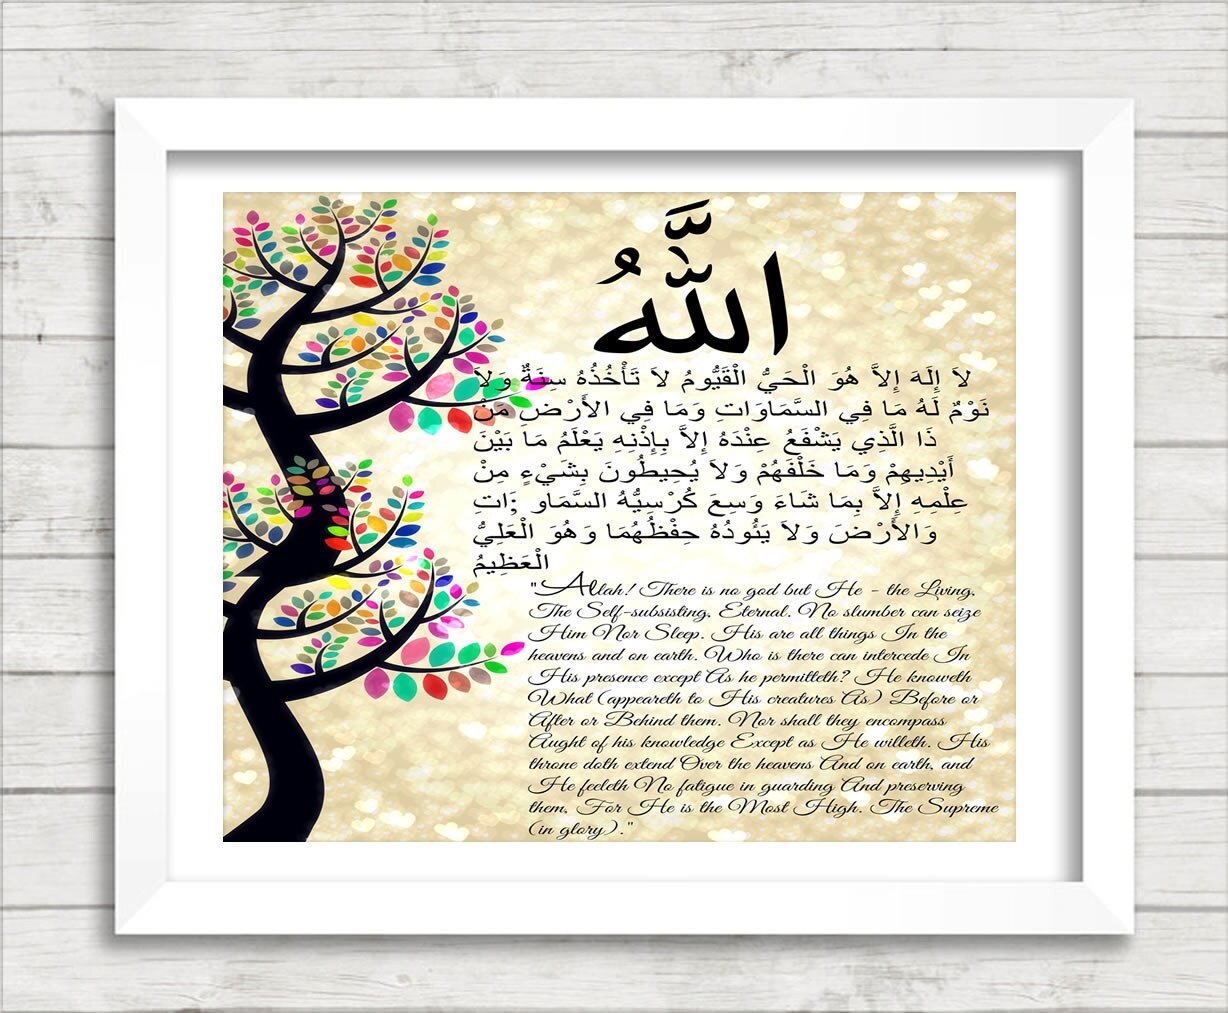 اللَّهُ
لاَ إِلَهَ إِلاَّ هُوَ الْحَيُّ الْقَيُّومُ لاَ تَأْخُذُهُ سِنَةٌ وَلاَ
نَوْمٌ لَهُ مَا فِي السَّمَاوَاتِ وَمَا فِي الأَرْضِ مَنْ
ذَا الَّذِي يَشْفَعُ عِنْدَهُ إِلاَّ بِإِذْنِهِ يَعْلَمُ مَا بَيْنَ
أَيْدِيهِمْ وَمَا خَلْفَهُمْ وَلاَ يُحِيطُونَ بِشَيْءٍ مِنْ
عِلْمِهِ إِلاَّ بِمَا شَاءَ وَسِعَ كُرْسِيُّهُ السَّمَاو ;َات
وَالأَرْضَ وَلاَ يَئُودُهُ حِفْظُهُمَا وَهُوَ الْعَلِيُّ
الْعَظِيمُ
"Allah! There is no god but He - the Living,
The Self-subsisting, Eternal. No slumber can seize
Him Nor Sleep. His are all things In the
heavens and on earth. Who is there can intercede In
His presence except As he permitteth? He knoweth
What (appeareth to His creatures As) Before or
After or Behind them. Nor shall they encompass
Aught of his knowledge Except as He willeth. His
throne doth extend Over the heavens And on earth, and
He feeleth No fatigue in guarding And preserving
them, For He is the Most High. The Supreme
(in glory)."